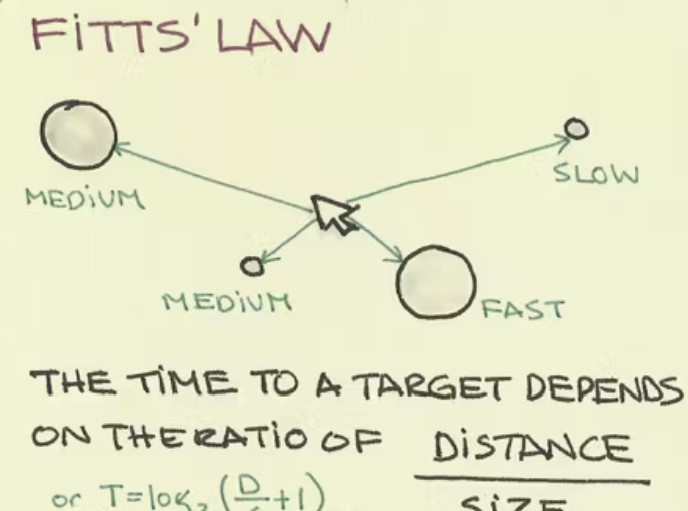 FiTTS' LAW
SLOW
MEDiUM
MEDiUM
FAST
THE TiME TO A TARGET DEPENDS
ON THE RATiO OF DiSTANCE
SiZE
or T=log₂(D/ +1)